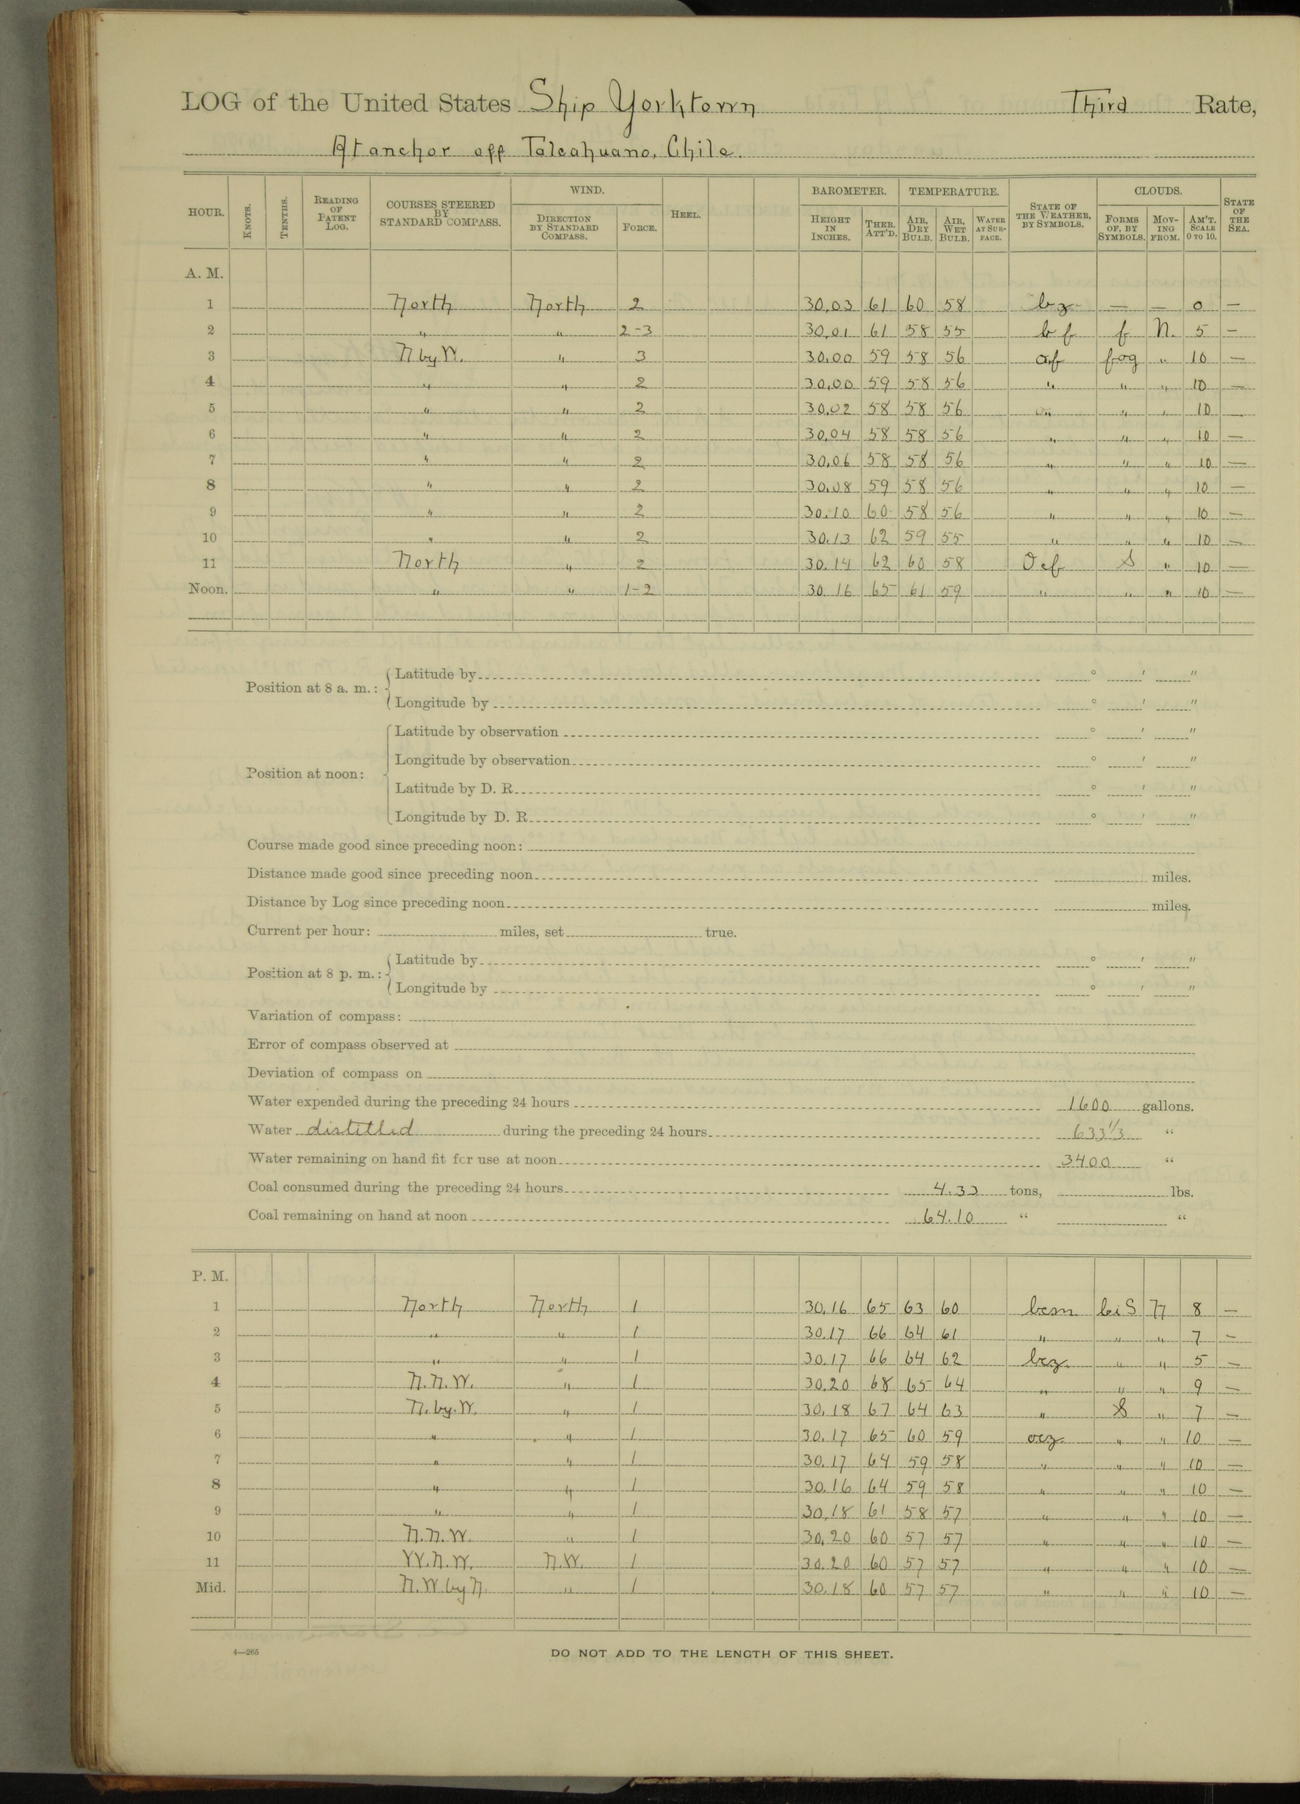 LOG of the United States Ship Yorktown Third Rate,
At anchor off Talcahuano, Chile.
HOUR. KNOTS. TENTHS. READING OF PATENT LOG. COURSES STEERED BY STANDARD COMPASS. WIND. DIRECTION BY STANDARD COMPASS. FORCE. HEEL. BAROMETER. HEIGHT IN INCHES. THER. ATT'D. TEMPERATURE. AIR, DRY BULB. AIR, WET BULB. WATER AT SURFACE. STATE OF THE WEATHER, BY SYMBOLS. CLOUDS. FORMS OF, BY SYMBOLS. MOVING FROM. AM'T. SCALE 0 TO 10. STATE OF THE SEA.
A. M.
1 North North 2 30.03 61 60 58 bz — — 0 —
2 " " 2-3 30.01 61 58 55 b f f N. 5 —
3 N by W. " 3 30.00 59 58 56 of fog " 10 —
4 " " 2 30.00 59 58 56 " " " 10 —
5 " " 2 30.02 58 58 56 " " " 10 —
6 " " 2 30.04 58 58 56 " " " 10 —
7 " " 2 30.06 58 58 56 " " " 10 —
8 " " 2 30.08 59 58 56 " " " 10 —
9 " " 2 30.10 60 58 56 " " " 10 —
10 " " 2 30.13 62 59 55 " " " 10 —
11 North " 2 30.14 62 60 58 Ocf S " 10 —
Noon. " " 1-2 30.16 65 61 59 " " " 10 —
Position at 8 a. m.: Latitude by ° ' "
Longitude by ° ' "
Position at noon: Latitude by observation ° ' "
Longitude by observation ° ' "
Latitude by D. R. ° ' "
Longitude by D. R. ° ' "
Course made good since preceding noon:
Distance made good since preceding noon miles.
Distance by Log since preceding noon miles.
Current per hour: miles, set true.
Position at 8 p. m.: Latitude by ° ' "
Longitude by ° ' "
Variation of compass:
Error of compass observed at
Deviation of compass on
Water expended during the preceding 24 hours 1600 gallons.
Water distilled during the preceding 24 hours 633 1/3 "
Water remaining on hand fit for use at noon 3400 "
Coal consumed during the preceding 24 hours 4.33 tons, lbs.
Coal remaining on hand at noon 64.10 " "
P. M.
1 North North 1 30.16 65 63 60 bcm S N 8 —
2 " " 1 30.17 66 64 61 " " " 7 —
3 " " 1 30.17 66 64 62 bcz " " 5 —
4 N.N.W. " 1 30.20 68 65 64 " " " 9 —
5 N. by. W. " 1 30.18 67 64 63 " S " 7 —
6 " " 1 30.17 65 60 59 ocz " " 10 —
7 " " 1 30.17 64 59 58 " " " 10 —
8 " " 1 30.16 64 59 58 " " " 10 —
9 " " 1 30.18 61 58 57 " " " 10 —
10 N.N.W. " 1 30.20 60 57 57 " " " 10 —
11 W.N.W. N.W. 1 30.20 60 57 57 " " " 10 —
Mid. N.W by N. " 1 30.18 60 57 57 " " " 10 —
4—265
DO NOT ADD TO THE LENGTH OF THIS SHEET.